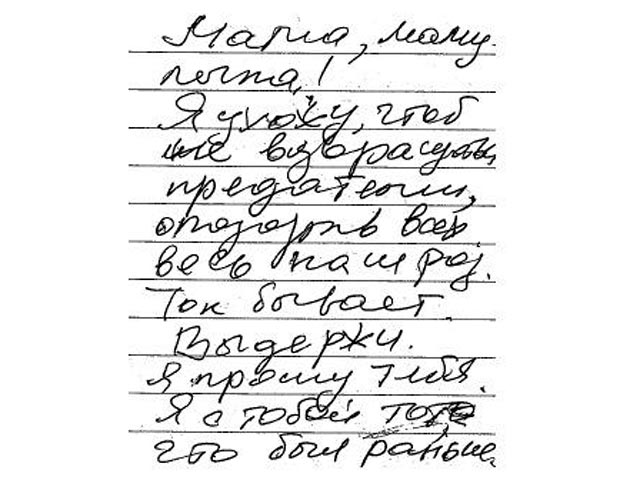 Мама, маму-
лечка!
Я ухожу, чтоб
не возвращ
предателем,
опозорив всех
весь наш род.
Так бывает.
Выдержи.
Я прошу тебя.
Я с тобой тот
что был раньше.